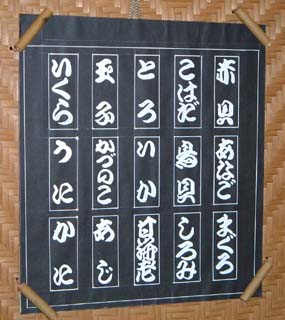 赤貝
あなご
まぐろ
こはだ
鳥貝
しろみ
とろ
いか
甘海老
玉子
かづのこ
あじ
いくら
うに
かに